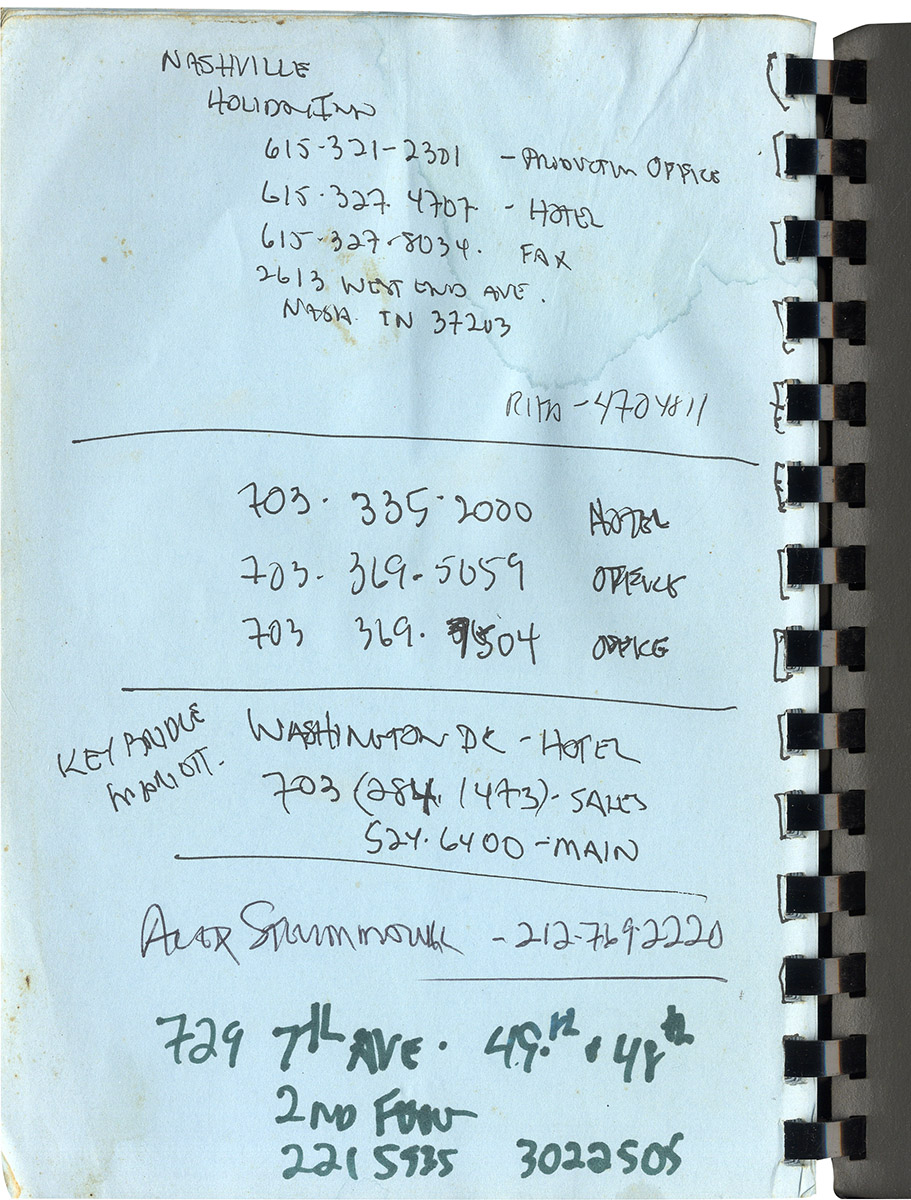 NASHVILLE
HOLIDAY INN
615-321-2301 - PRODUCTION OFFICE
615-327 4707 - HOTEL
615-327-8034. FAX
2613 WEST END AVE.
NASH. TN 37203
RITA - 4704811
703. 335-2000 HOTEL
703. 369-5059 OFFICE
703 369. 504 OFFICE
KEY BRIDGE
MARIOTT.
WASHINGTON DC - HOTEL
703 (284. 1473) - SALES
524.6400 - MAIN
212-769-2220
729 7th AVE. 49.th + 48th
2ND FLOOR
221 5935 3022505